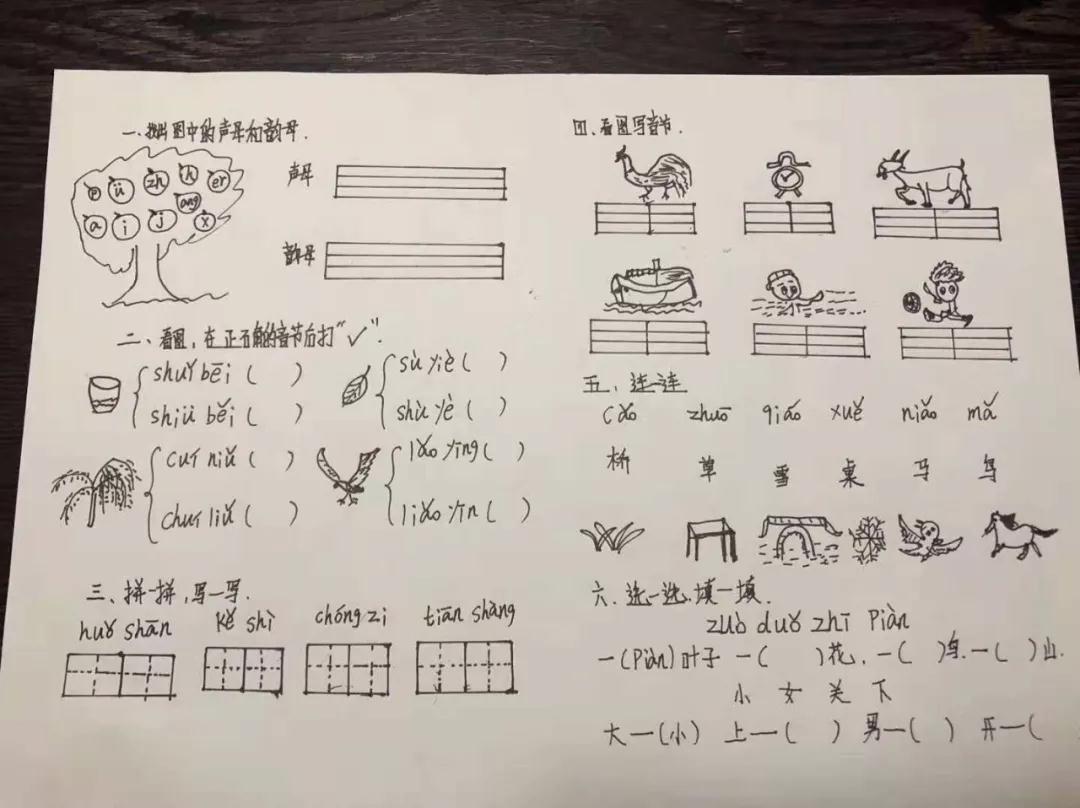 一、找出图中的声母和韵母.
p ü zh h er
a i j ang x
声母
韵母
二、看图，在正确的音节后打"✓".
shuǐ bēi (   )
shiǔ běi (   )
sù yiè (   )
shù yè (   )
cuí niǔ (   )
chuí liǔ (   )
lǎo yīng (   )
liǎo yīn (   )
三、拼一拼，写一写.
huǒ shān kě shì chóng zi tiān shàng
四、看图写音节.
五、连一连
cǎo zhuō qiáo xuě niǎo mǎ
桥 草 雪 桌 马 鸟
六、选一选，填一填.
zuò duǒ zhī piàn
一(piàn)叶子 一(   )花, 一(   )鸟, 一(   )山.
小 女 关 下
大一(小) 上一(   ) 男一(   ) 开一(